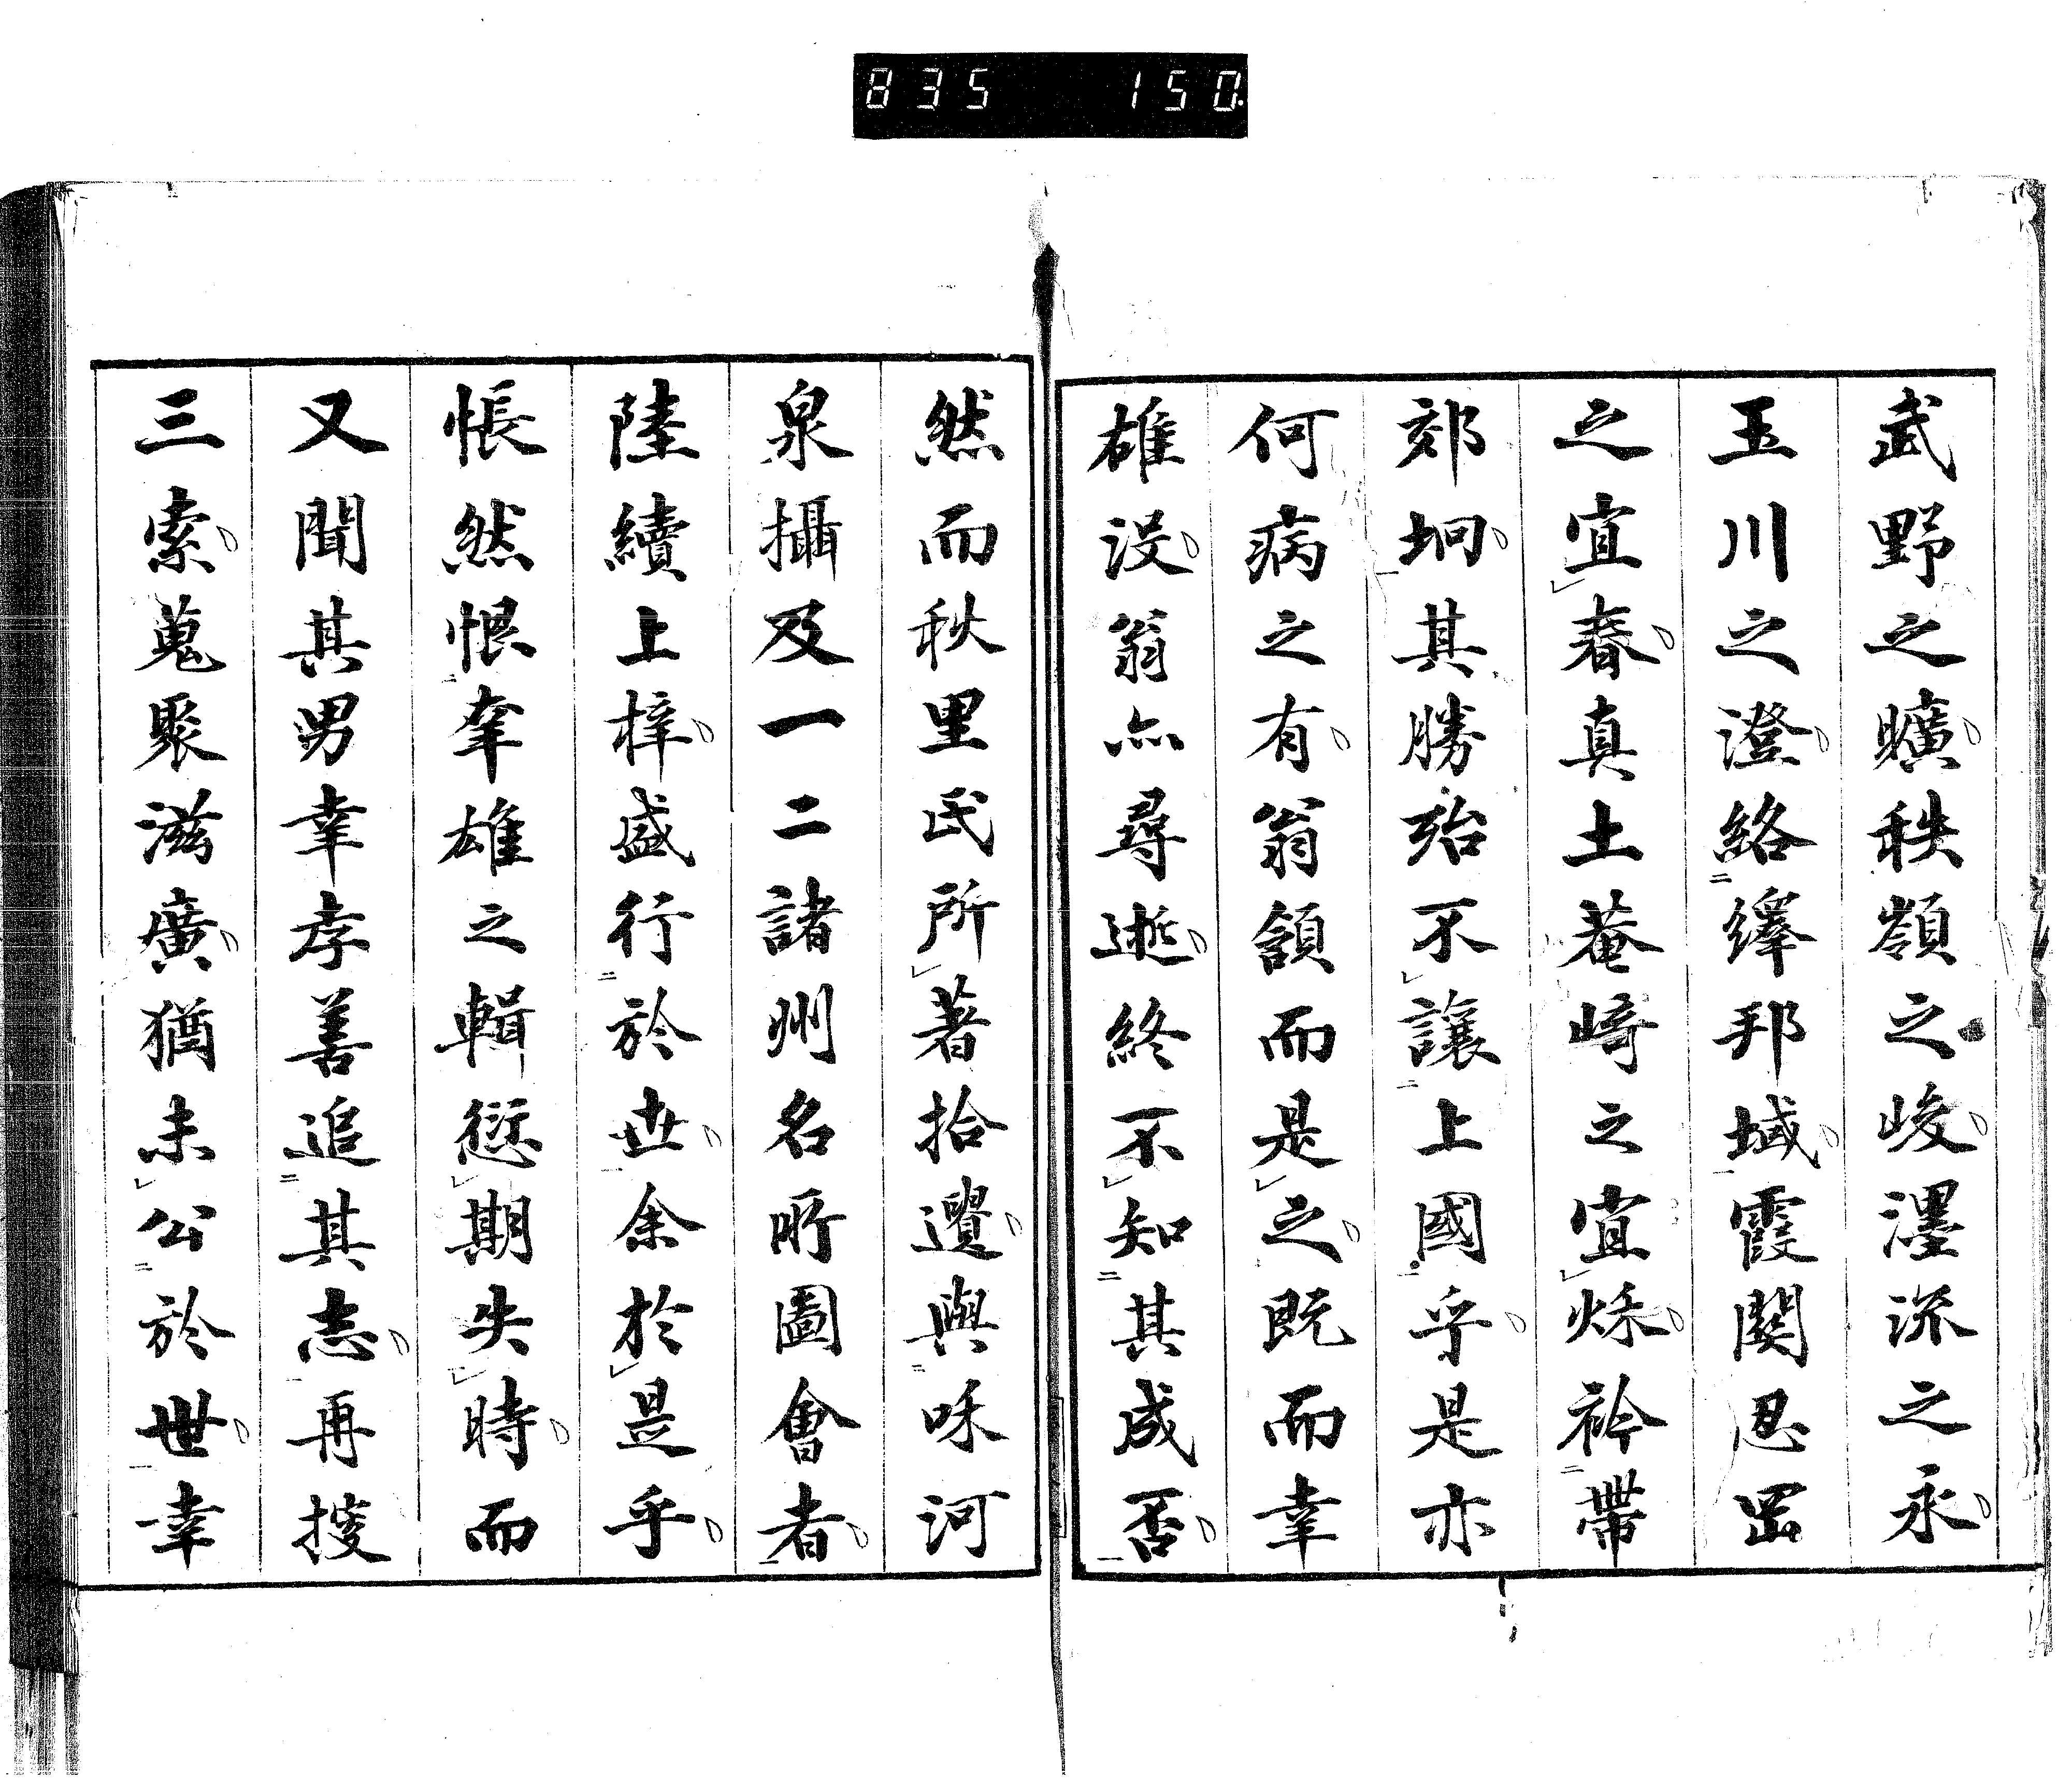 835 150
武野之曠秩嶺之峻濹流之永
玉川之澄絡繹邦域霞関忍岡
之宜春真土菴崎之宜烁衿帶
郊坰其勝殆不讓上國乎是亦
何病之有翁頷而是之既而幸
雄没翁亦尋逝終不知其成否
然而秋里氏所著拾遺與咊河
泉攝及一二諸州名所圖會者
陸續上梓盛行於世余於是乎
悵然恨幸雄之輯愆期失時而
又聞其男幸孝善追其志再搜
三索蒐聚滋廣猶未公於世幸